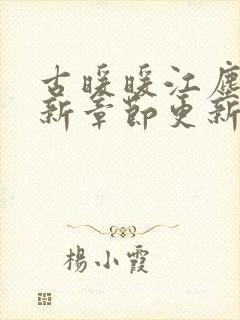 古暖暖江塵
新章節更新
楊小霞